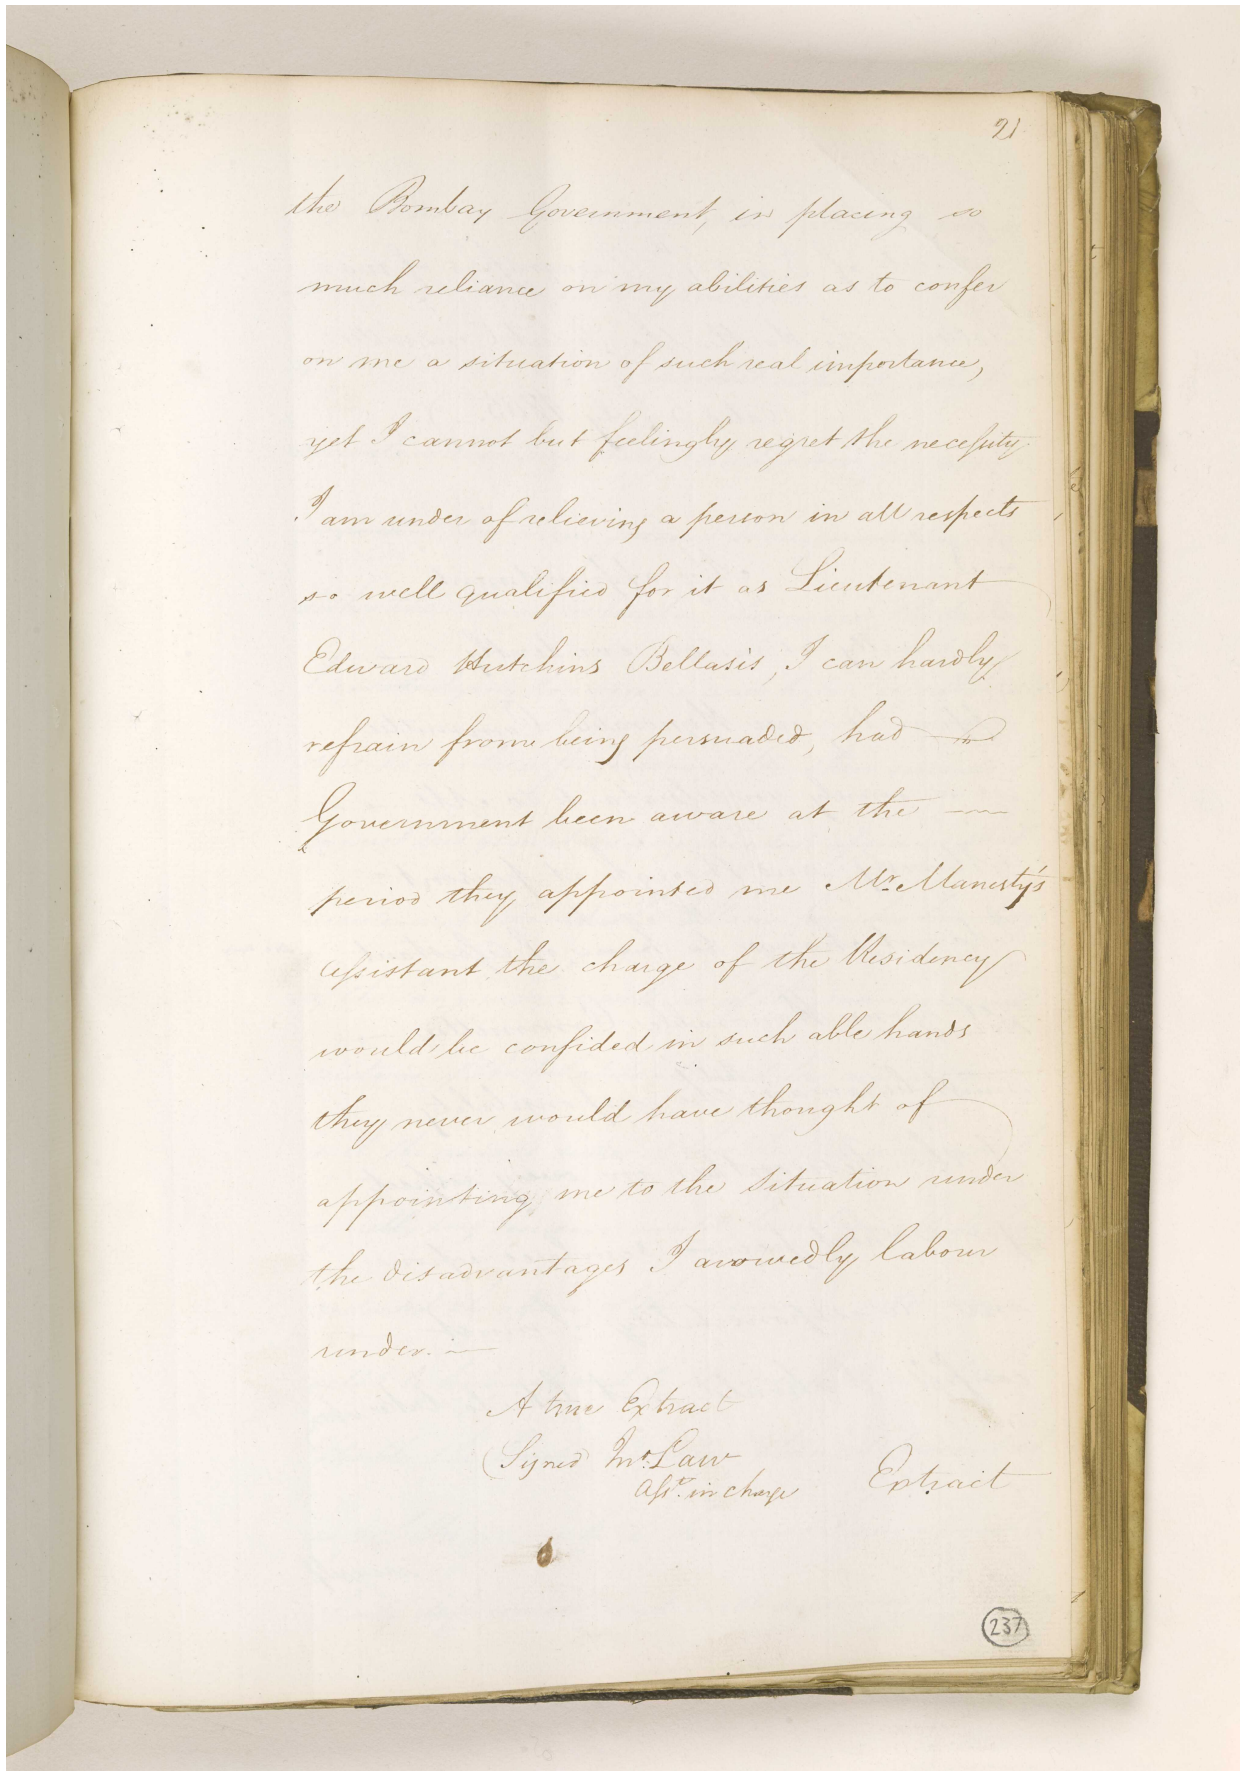 21
the Bombay Government, in placing so
much reliance on my abilities as to confer
on me a situation of such real importance,
yet I cannot but feelingly regret the necessity
I am under of relieving a person in all respects
so well qualified for it as Lieutenant
Edward Hutchins Bellasis, I can hardly
refrain from being persuaded, had
Government been aware at the
period they appointed me Mr. Manesty's
assistant the charge of the Residency
would be confided in such able hands
they never would have thought of
appointing me to the situation under
the disadvantages I avowedly labour
under. —
A true Extract
(Signed Law
Asst. in charge
Extract
237